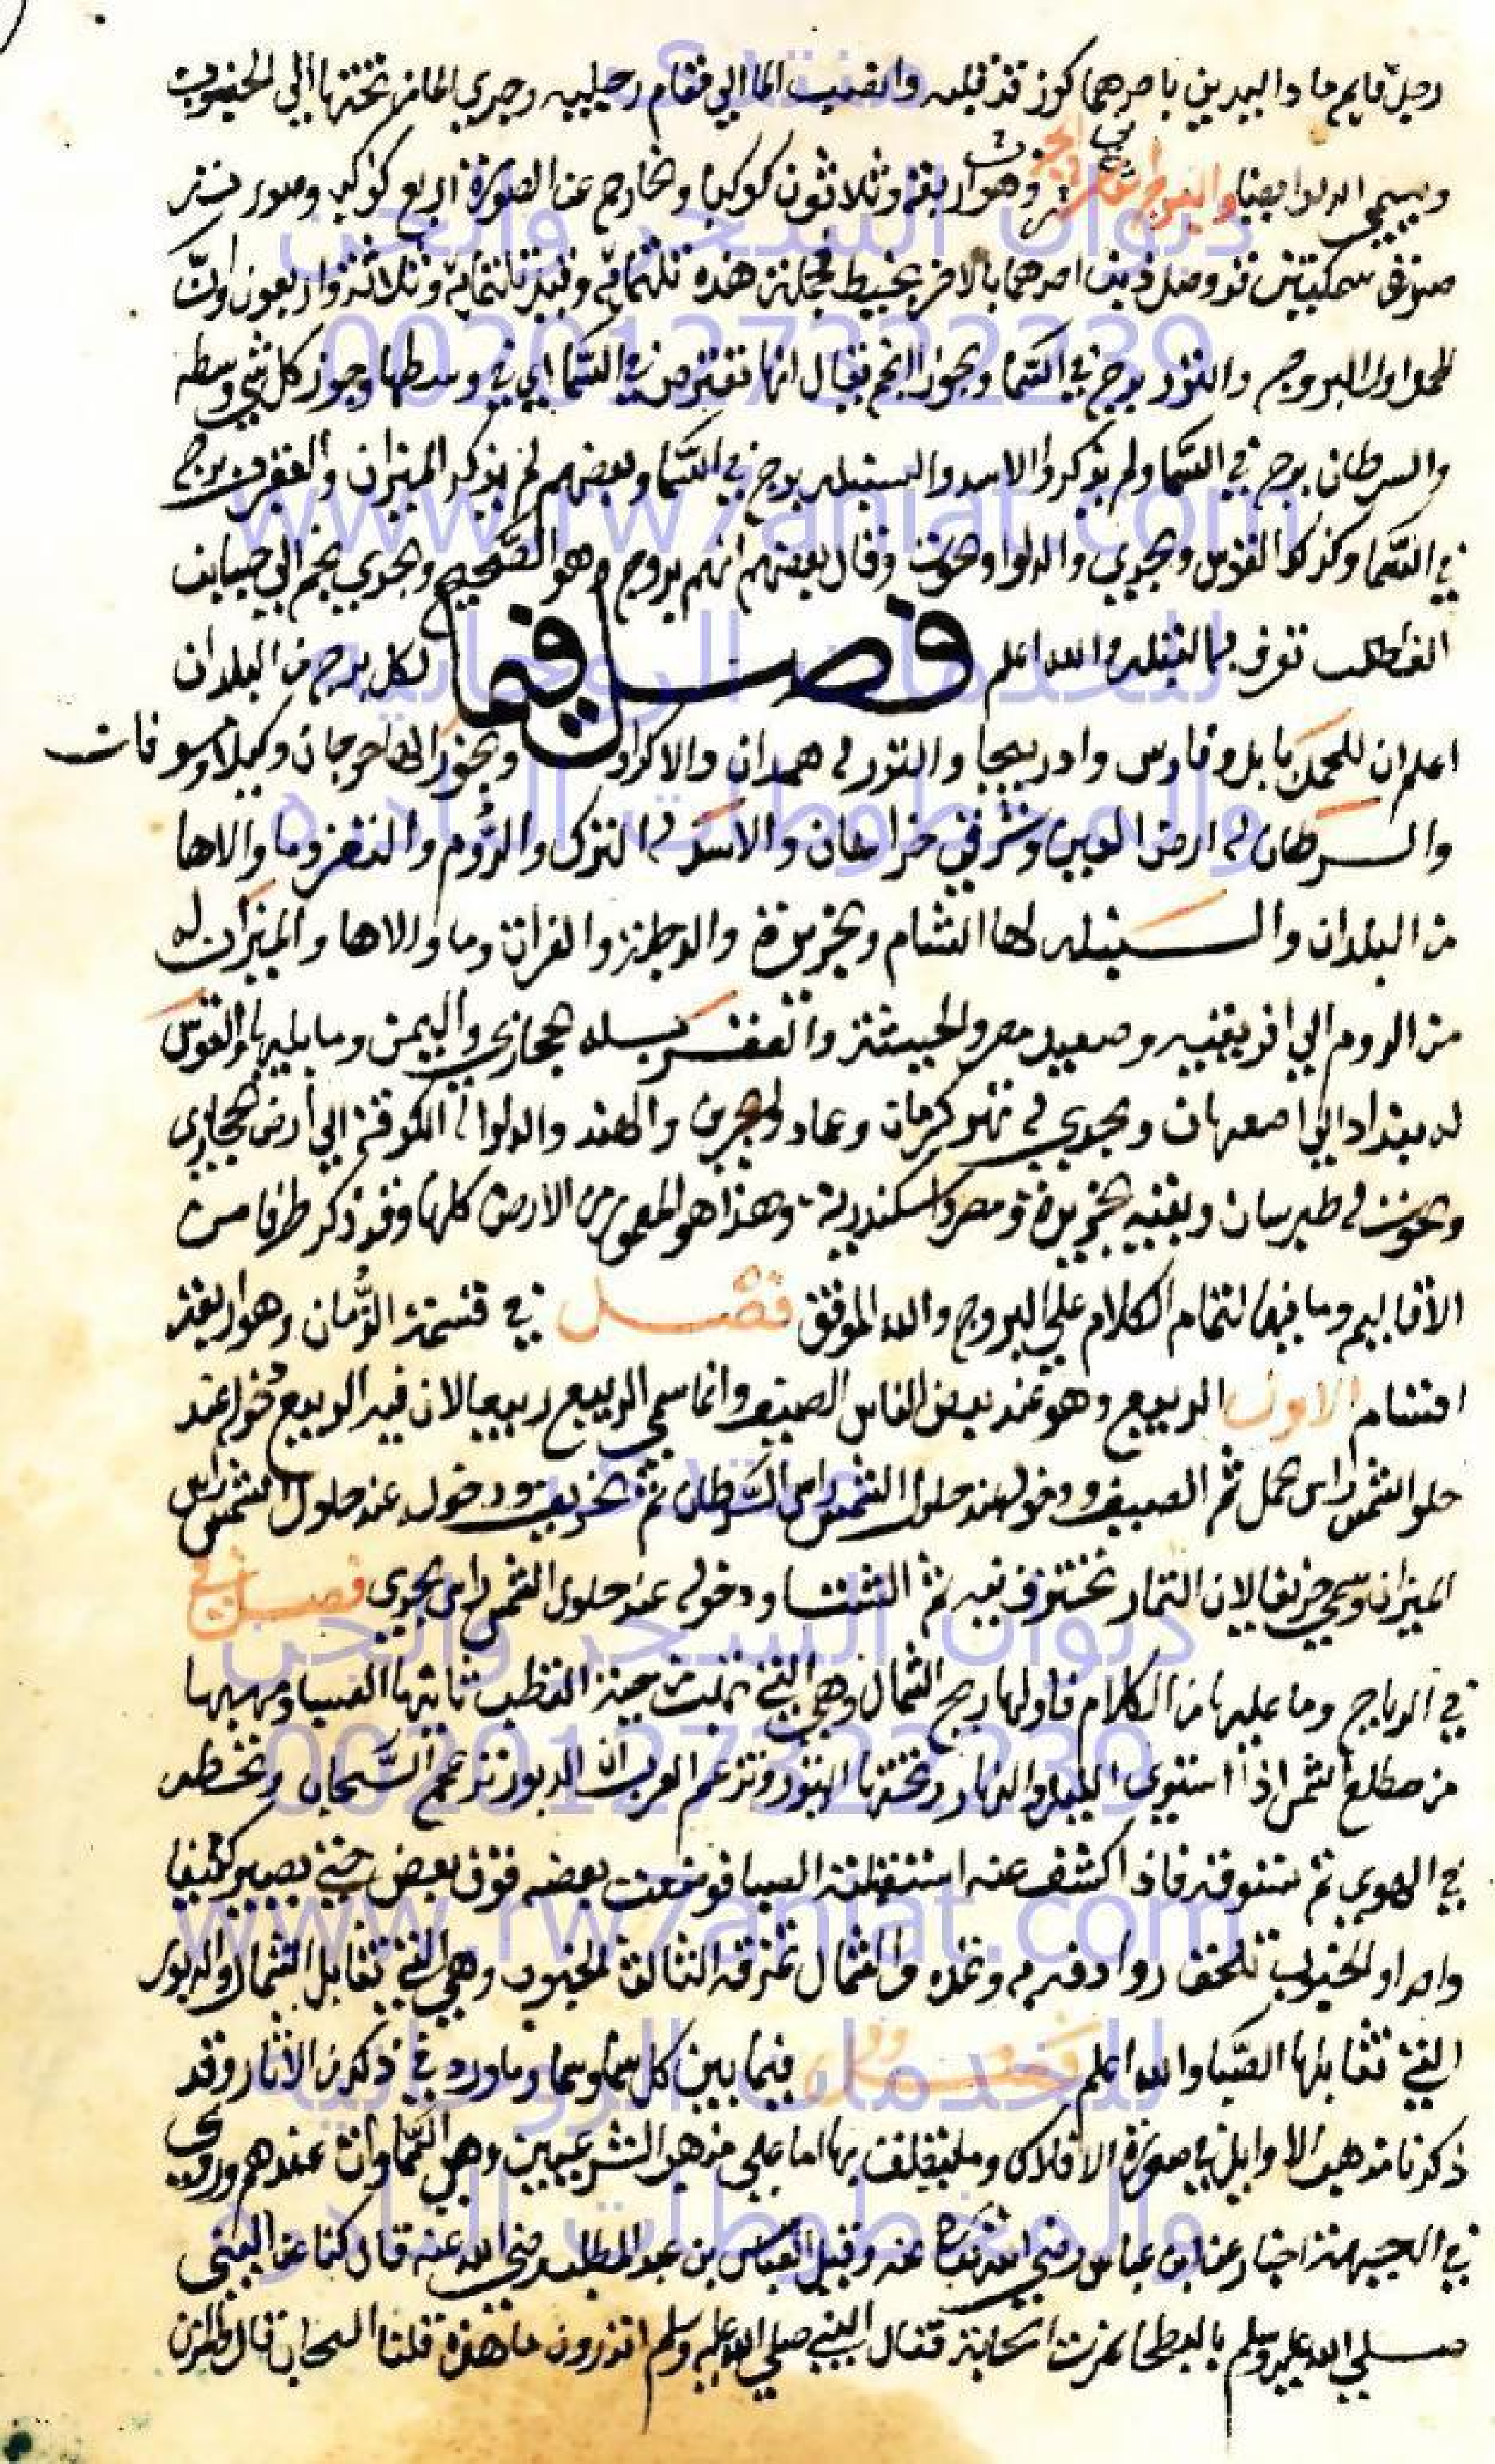 رجل قايم ماد اليدين باحدهما كوز قد قلبه وانصب الما الي مقام رجليه وجري الما من تحتها الي الجنوب
ويسمي الدلو ايضا والبرج الثاني عشر الحوت وهو اربعة وثلاثون كوكبا والخارج عن الصورة اربع كواكب وصورته
صورة سمكتين قد وصل ذنب احدهما بالاخر بخيط فجملة هذه ثلثماية وقيل ثلثماية وثلاثة واربعون وان
الحمل اول البروج والثور برج في السما والجوزا نجم يقال انها تعترض في السما اي في وسطها وجوز كل شي وسطه
والسرطان برج في السما ولم يذكروا الاسد والسنبله برج في السما وبعضهم لم يذكر الميزان والعقرب برج
في السما وكذلك القوس والجدي والدلو والحوت وقال بعضهم انهم بروج وهو الصحيح والجدي نجم الي جانب
القطب تعرف به القبله والله اعلم فصل فيما لكل برج من البلدان
اعلم ان للحمل بابل وفارس وادربيجا والثور له همدان والاكراد والجوزا لها جرجان وكيلان وموقان
والسرطان له ارض الصين وشرقي خراسان والاسد له الترك والروم والنغز وما والاها
من البلدان والسنبله لها الشام والجزيرة والدجلة والفراة وما والاها والميزان له
من الروم الي افريقيه وصعيد مصر والحبشة والعقرب له الحجاز واليمن وما يليها والقوس
له بغداد الي اصبهان والجدي له نهر كرمان وعمان والبحرين والهند والدلو له الكوفة الي ارض الحجاز
والحوت له طبرسان وبقيه الجزيرة ومصر واسكندرية وهذا هو المعمور من الارض كلها وقد ذكر طرفا من
الاقاليم وما فيها لتمام الكلام علي البروج والله الموفق فصل في قسمة الزمان وهو اربعة
اقسام الاول الربيع وهو عند بعض الناس الصيف وانما سمي الربيع ربيعا لان فيه الربيع دخوله عند
حلو الشمس راس الحمل ثم الصيف ودخوله عند حلول الشمس راس السرطان ثم الخريف ودخوله عند حلول الشمس راس
الميزان وسمي خريفا لان الثمار تخترف فيه ثم الشتا ودخوله عند حلول الشمس راس الجدي فصل
في الرياح وما عليها من الكلام فاولها ريح الشمال وهي التي تهب من جهة القطب ثانيها الصبا ومهبها
من مطلع الشمس اذا استوي الليل والنهار وتحتها الدبور وتزعم العرب ان الدبور تزعج السحاب وتشخصه
في الهوي ثم تسوقه فاذا كشف عنه استقبلته الصبا فوضعت بعضه فوق بعض حتي يصير كثيفا
واحدا والجنوب تلحق روادفه وتمده والشمال تمزقه الثالثة الجنوب وهي التي تقابل الشمال والدبور
التي تقابلها الصبا والله اعلم فصل فيما بين كل سما وسما وما ورد في ذكر من الاثار وقد
ذكرنا مذهب الاوايل في صورة الافلاك وما يتعلق بها اما علي مذهب الشرعيين وهي السماوات عندهم وروي
في الحديث اخبار عن ابن عباس رضي الله تعالي عنه وقيل العباس بن عبد المطلب رضي الله عنه قال كنا عند النبي
صلي الله عليه وسلم بالبطحا فمرت سحابة فقال النبي صلي الله عليه وسلم اتدرون ما هذه قلنا السحاب قال والمزن
منتدى
ديوان السحر والجن
0020127322239
www.rw7aniat.com
للخدمات الروحانية
والمخطوطات النادرة
منتدى
ديوان السحر والجن
0020127322239
www.rw7aniat.com
للخدمات الروحانية
والمخطوطات النادرة